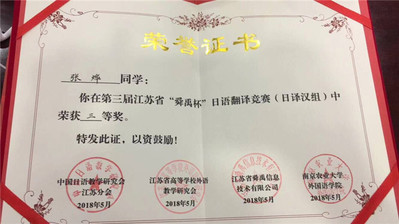 荣誉证书
张烨 同学：
你在第三届江苏省“舜禹杯”日语翻译竞赛（日译汉组）中
荣获 三 等奖。
特发此证，以资鼓励！
中国日语教学研究会 江苏省高等学校外语 江苏省舜禹信息 南京农业大学
江苏分会 教学研究会 技术有限公司 外国语学院
2018年5月 2018年5月 2018年5月 2018年5月